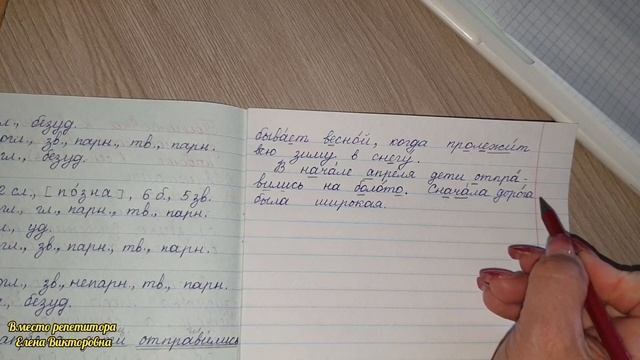 гл., безуд.
согл., зв., парн., тв., парн.
гл., безуд.
2 сл., [позна], 6 б., 5 зв.
гл., парн., тв., парн.
уд.
гл., зв., парн., тв., парн.
огл., зв., непарн., тв., парн.
безуд.
отправились
бывает весной, когда пролежит
всю зиму в снегу.
В начале апреля дети отпра-
вились на болото. Сначала дорога
была широкая.
Вместо репетитора
Елена Викторовна